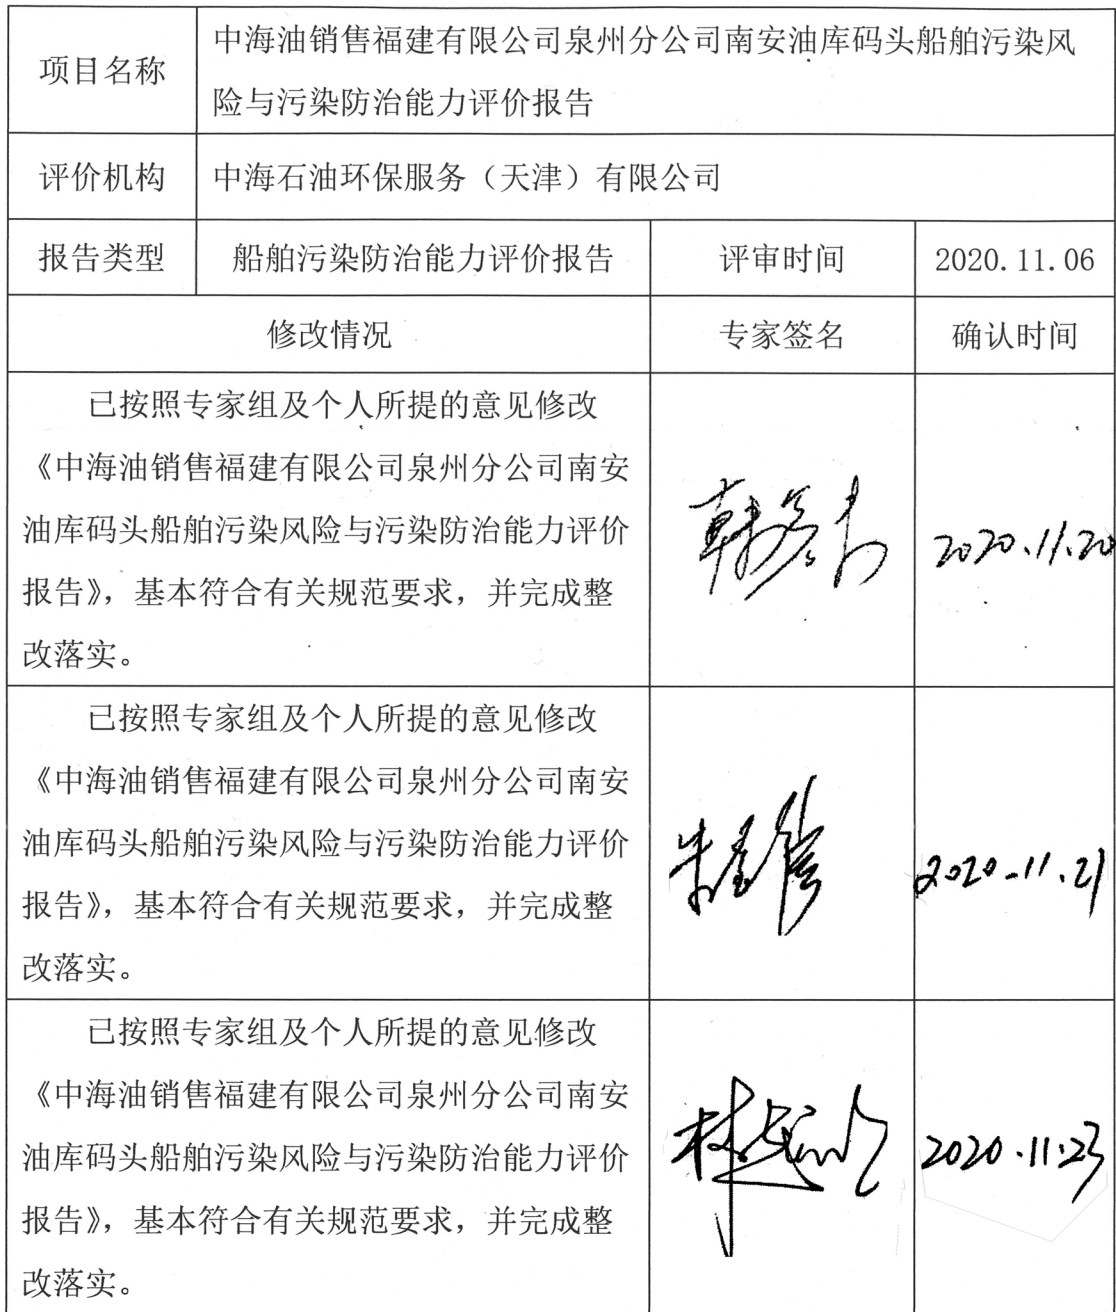 项目名称
中海油销售福建有限公司泉州分公司南安油库码头船舶污染风
险与污染防治能力评价报告
评价机构
中海石油环保服务（天津）有限公司
报告类型
船舶污染防治能力评价报告
评审时间
2020.11.06
修改情况
专家签名
确认时间
已按照专家组及个人所提的意见修改
《中海油销售福建有限公司泉州分公司南安
油库码头船舶污染风险与污染防治能力评价
报告》，基本符合有关规范要求，并完成整
改落实。
2020.11.20
已按照专家组及个人所提的意见修改
《中海油销售福建有限公司泉州分公司南安
油库码头船舶污染风险与污染防治能力评价
报告》，基本符合有关规范要求，并完成整
改落实。
2020.11.21
已按照专家组及个人所提的意见修改
《中海油销售福建有限公司泉州分公司南安
油库码头船舶污染风险与污染防治能力评价
报告》，基本符合有关规范要求，并完成整
改落实。
2020.11.23